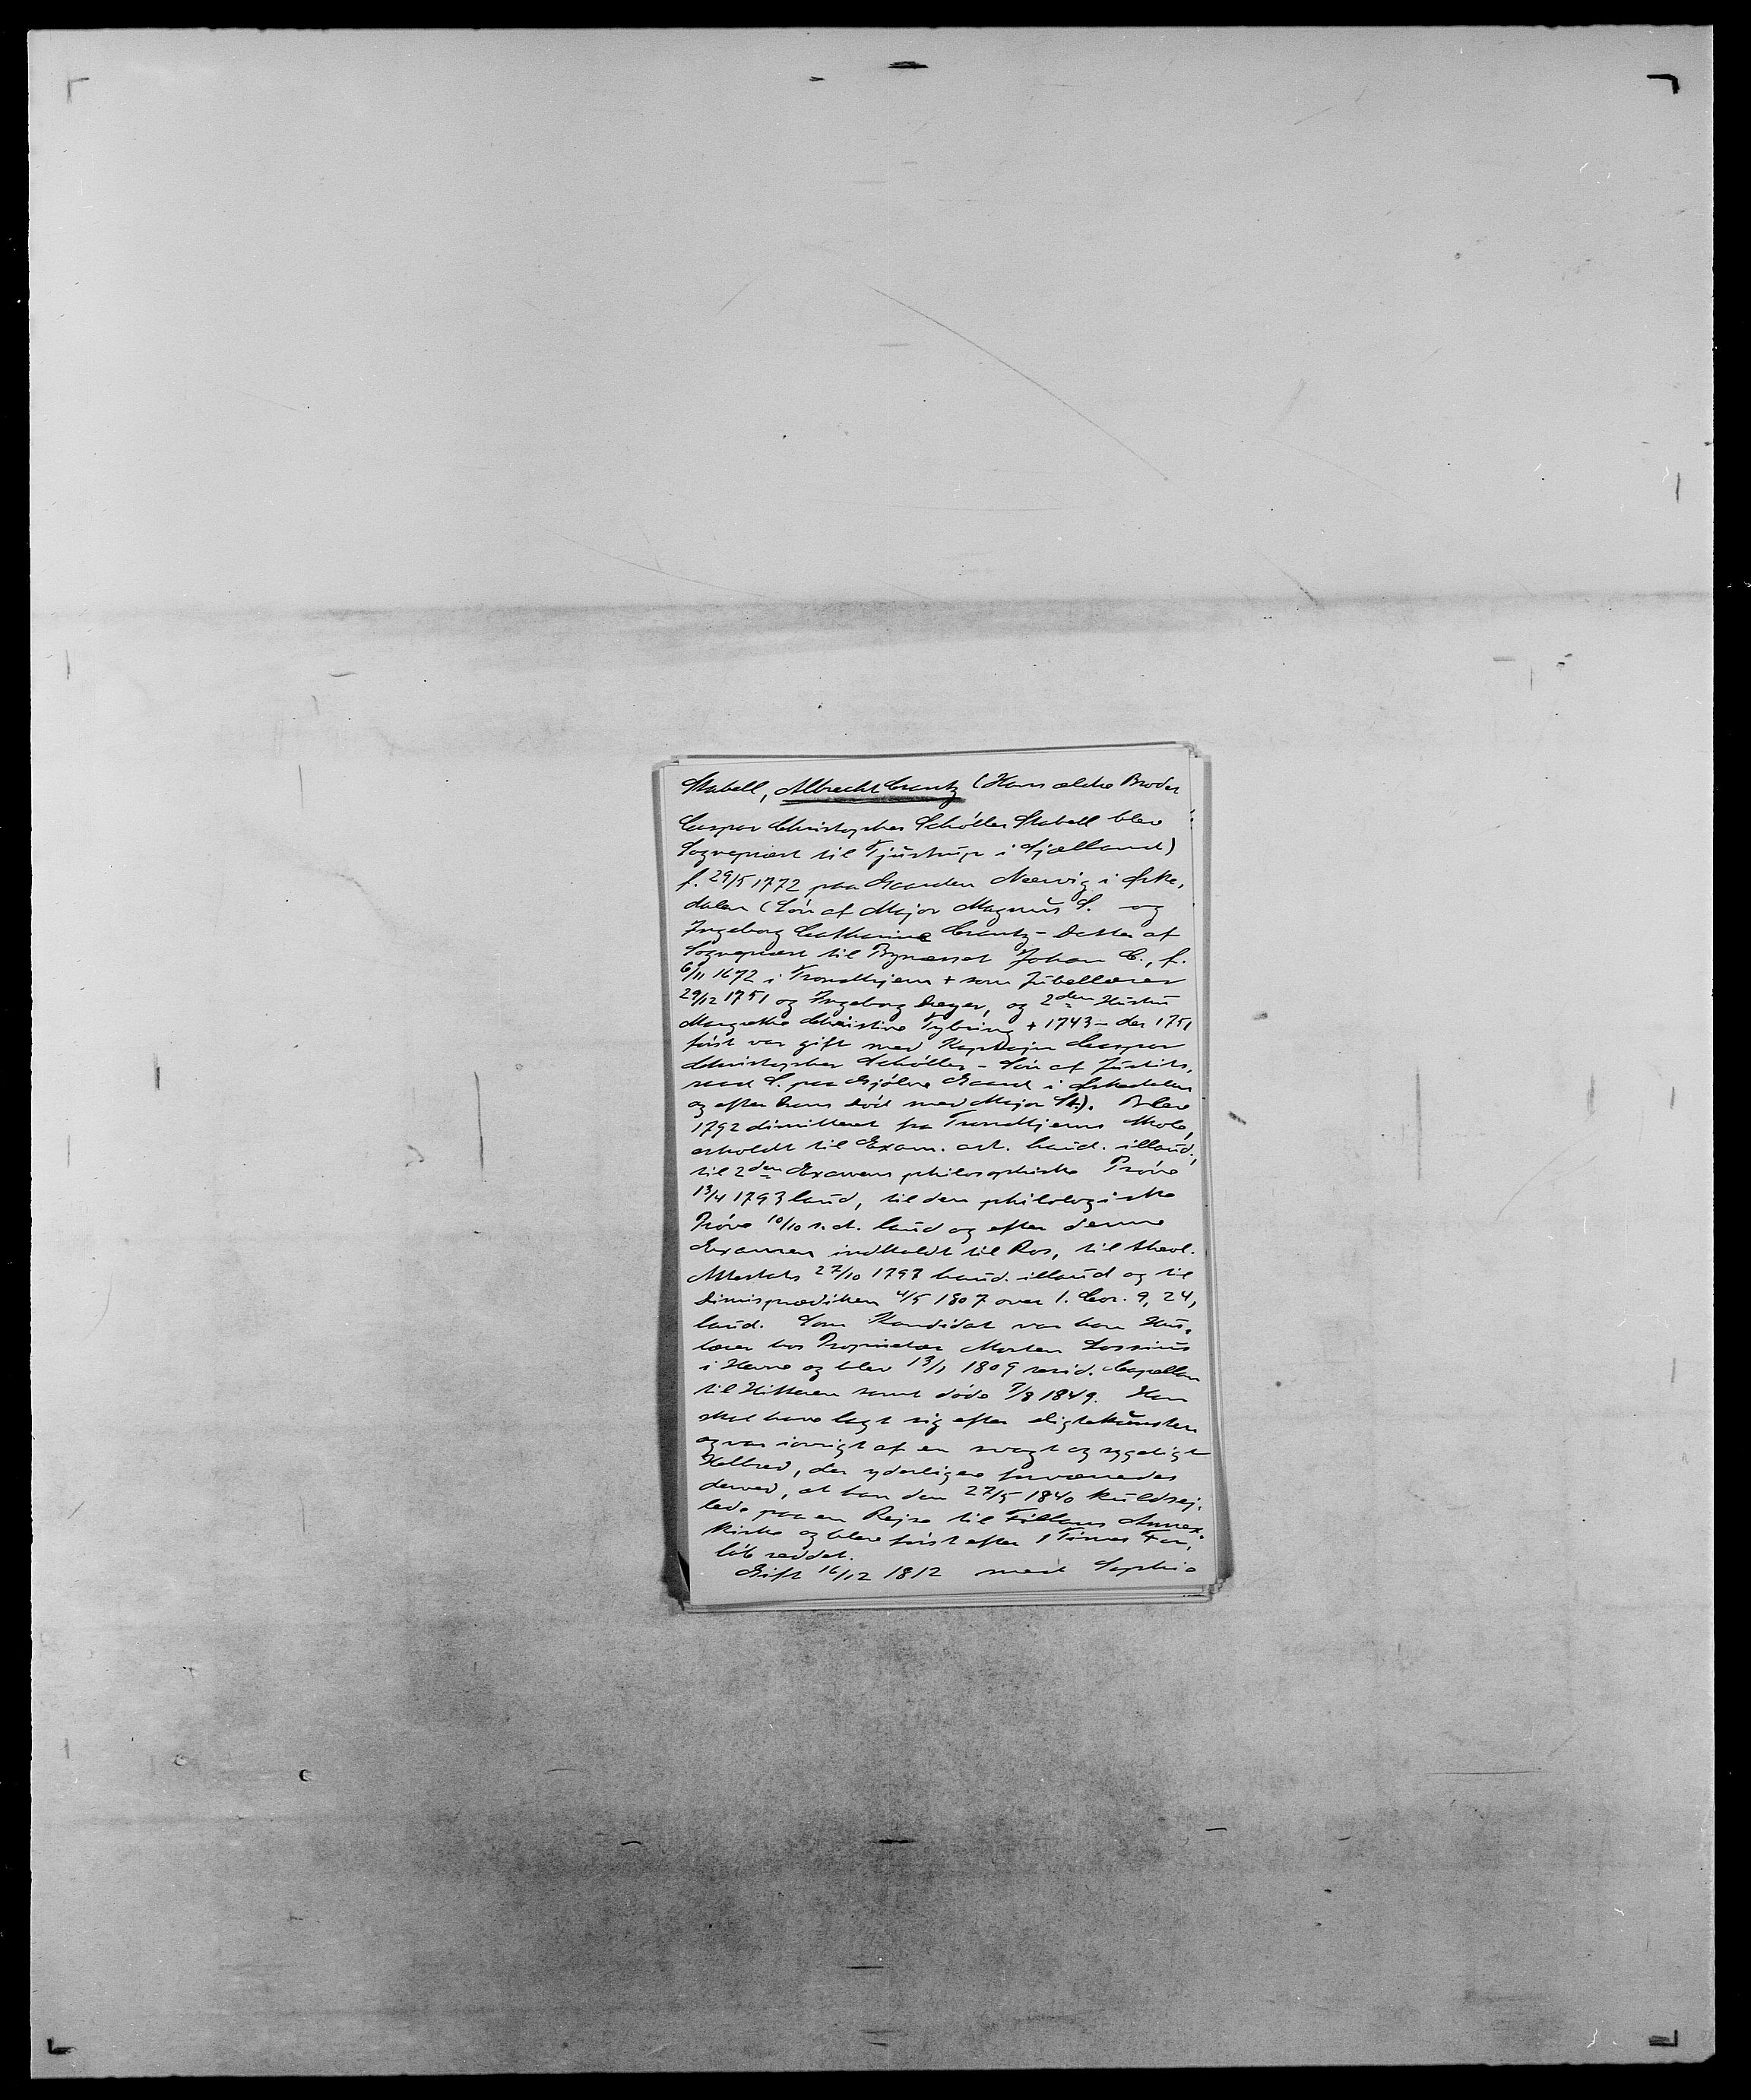 Stabell, Albrecht Crantz (Hans ældre Broder
Caspar Christopher Schöller Stabell blev
Sognepræst til Tjustrup i Sjælland)
f. 29/5 1772 paa Gaarden Nervig i Orke,
dalen (Sön af Major Magnus S. og
Ingeborg Catharine Crantz - Datter af
Sognepræst til Bynæsset Johan C., f.
6/11 1672 i Trondhjem + som Jubellærer
29/12 1751 og Ingeborg Dreyer, og 2den Hustru
Margrethe Christine Tybring + 1743 - der 1751
först var gift med Kaptajn Caspar
Christopher Schöller - Sön af Justits,
raad S. paa Gjölme Gaard i Orkedalen
og efter hans död med Major St.). Blev
1792 dimitteret fra Trondhjems Skole,
erholdt til Exam. art. haud. illaud.,
til 2den Examens philosophiske Pröve
13/4 1793 laud, til den philologiske
Pröve 10/10 s. A. laud og efter denne
Examen indkaldt til Ros, til theol.
Attestats 27/10 1797 haud. illaud og til
Dimisprædiken 4/5 1807 over 1. Cor. 9, 24,
laud. Som Kandidat var han Hus,
lærer hos Proprietær Morten Lossius
i Hevne og blev 13/1 1809 resid. Capellan
til Hitteren samt döde 7/8 1849. Han
skal have lagt sig efter digtekunsten
og var iövrigt af en svagt og sygeligt
Helbred, der yderligere forværredes
derved, at han den 27/5 1840 kuldsej,
lede paa en Rejse til Fillans Annex,
kirke og blev först efter 1 Times For,
löb reddet.
Gift 16/12 1812 med Sophie